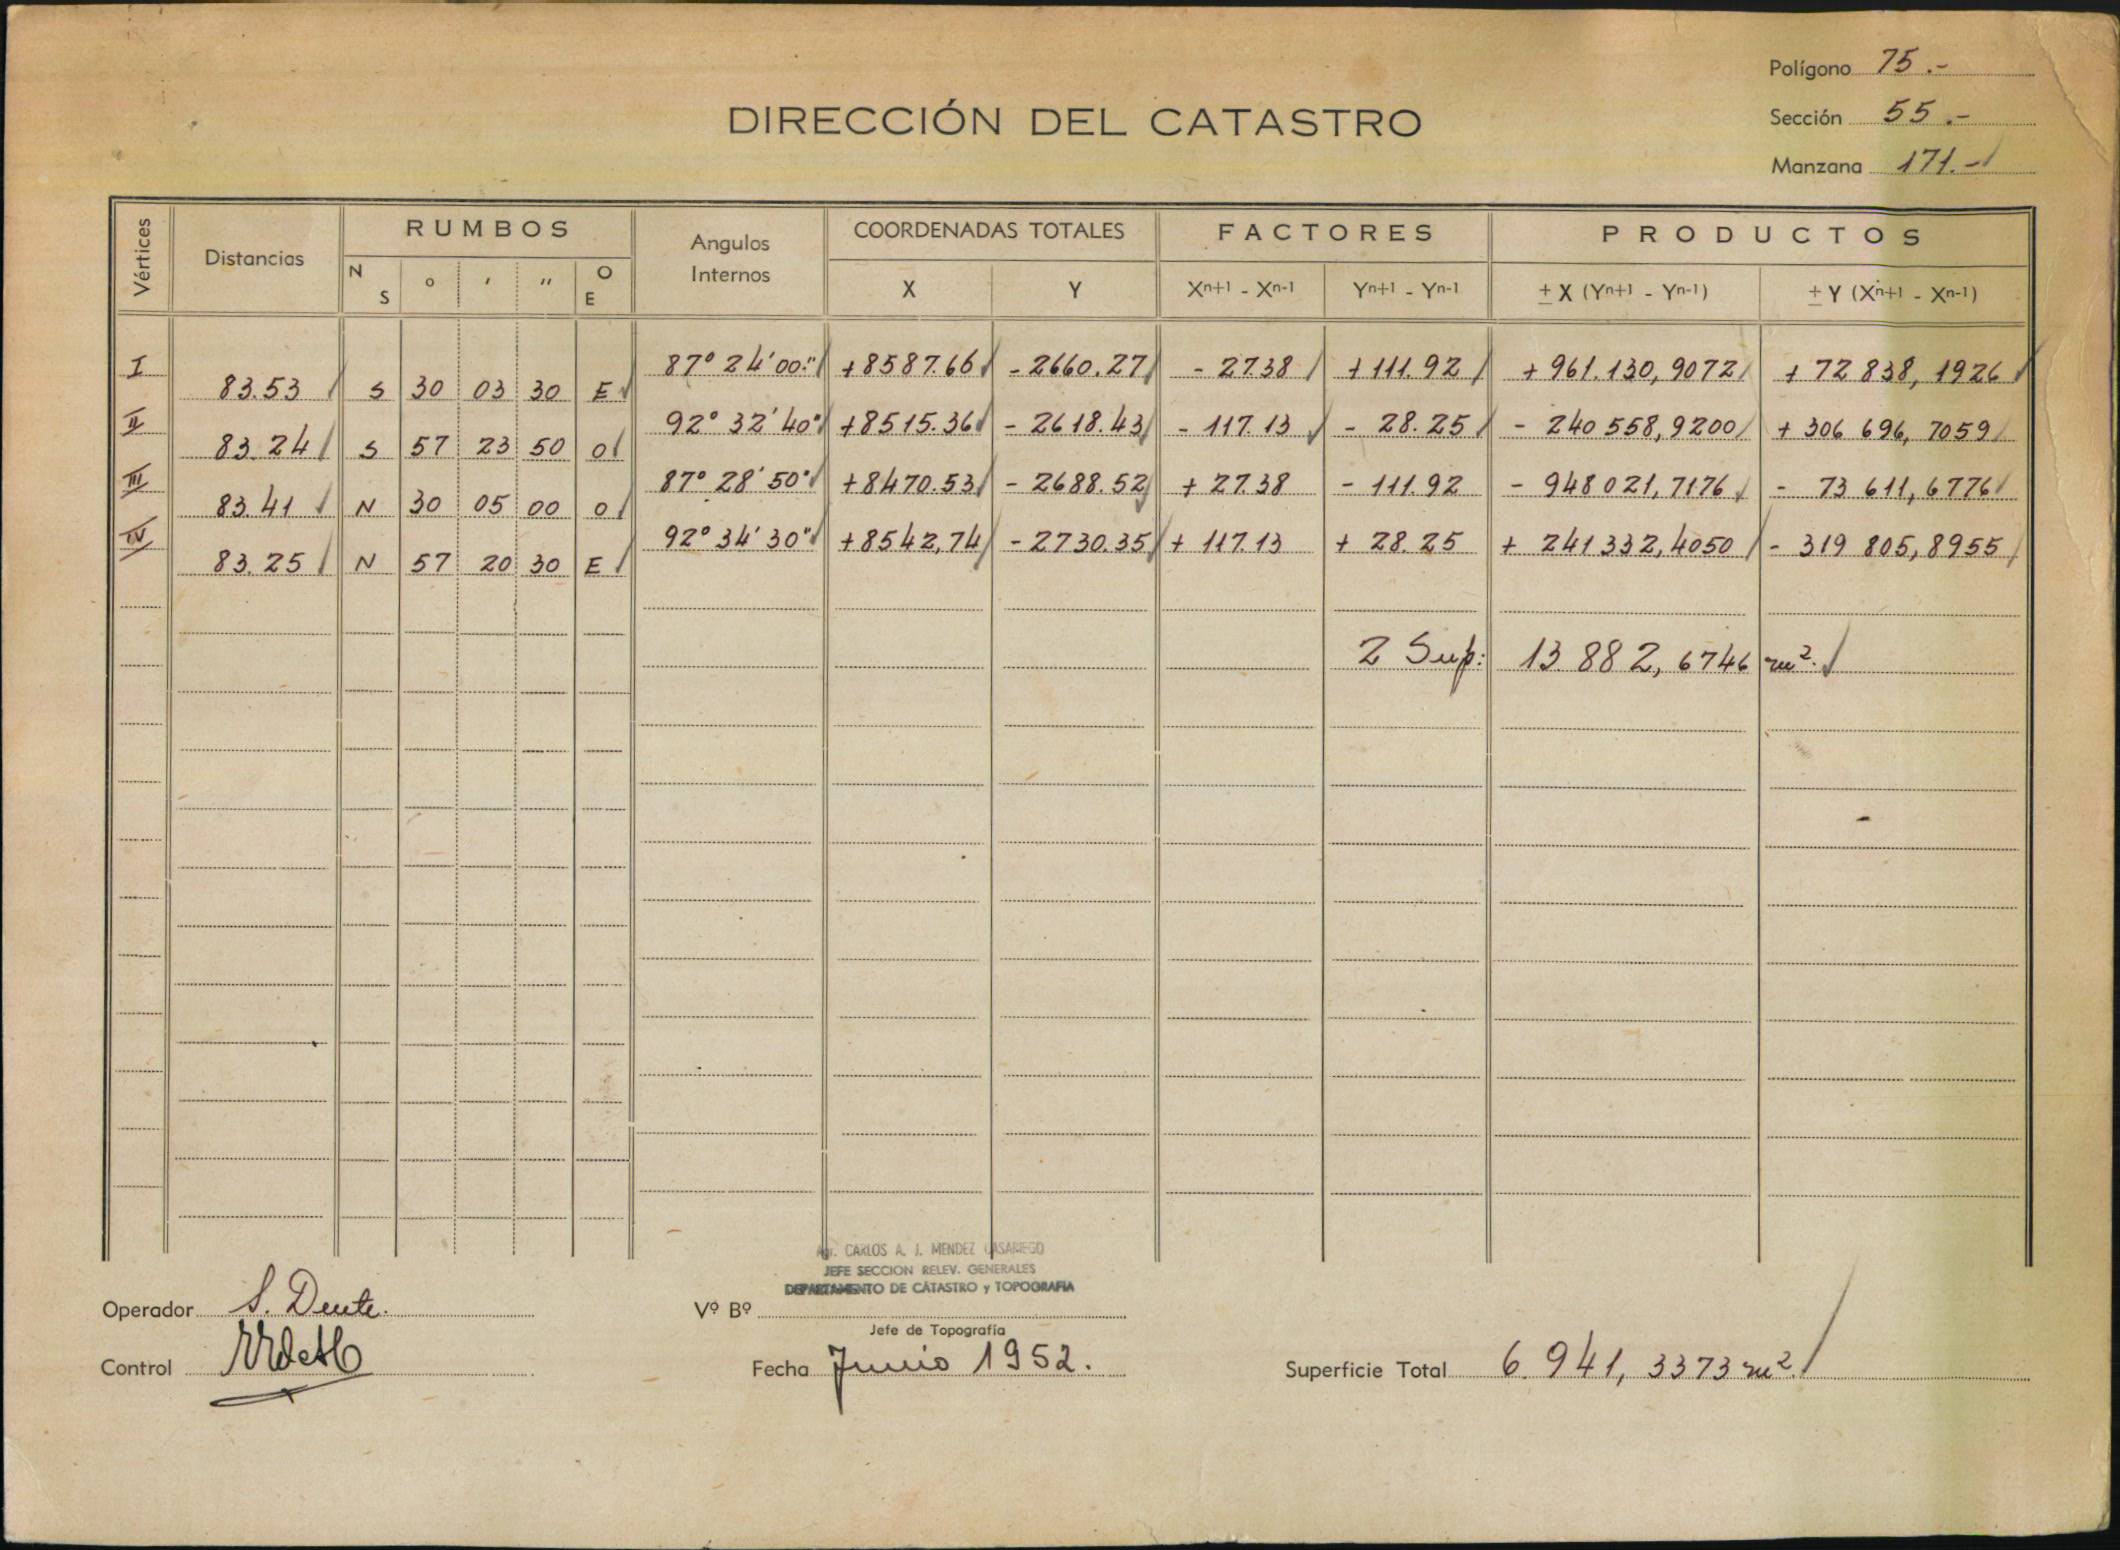 Polígono 75.-
DIRECCIÓN DEL CATASTRO
Sección 55.-
Manzana 171.-
Vértices Distancias RUMBOS Angulos Internos COORDENADAS TOTALES FACTORES PRODUCTOS
N S ° ' " O E X Y Xn+1 - Xn-1 Yn+1 - Yn-1 ± X (Yn+1 - Yn-1) ± Y (Xn+1 - Xn-1)
I 87° 24' 00" +8587.66 -2660.27 - 27.38 + 111.92 + 961.130,9072 + 72 838, 1926
83.53 S 30 03 30 E
II 92° 32' 40" +8515.36 - 2618.43 - 117.13 - 28.25 - 240 558,9200 + 306 696, 7059
83.24 S 57 23 50 O
III 87° 28' 50" +8470.53 - 2688.52 + 27.38 - 111.92 - 948 021,7176 - 73 611,6776
83.41 N 30 05 00 O
IV 92° 34' 30" +8542,74 - 2730.35 + 117.13 + 28.25 + 241 332,4050 - 319 805,8955
83.25 N 57 20 30 E
2 Sup: 13 882, 6746 m².
Agr. CARLOS A. J. MENDEZ CASARIEGO
JEFE SECCION RELEV. GENERALES
DEPARTAMENTO DE CATASTRO y TOPOGRAFIA
Operador S. Dente.
Vº Bº
Jefe de Topografía
Control
Fecha Junio 1952.
Superficie Total 6.941, 3373 m².